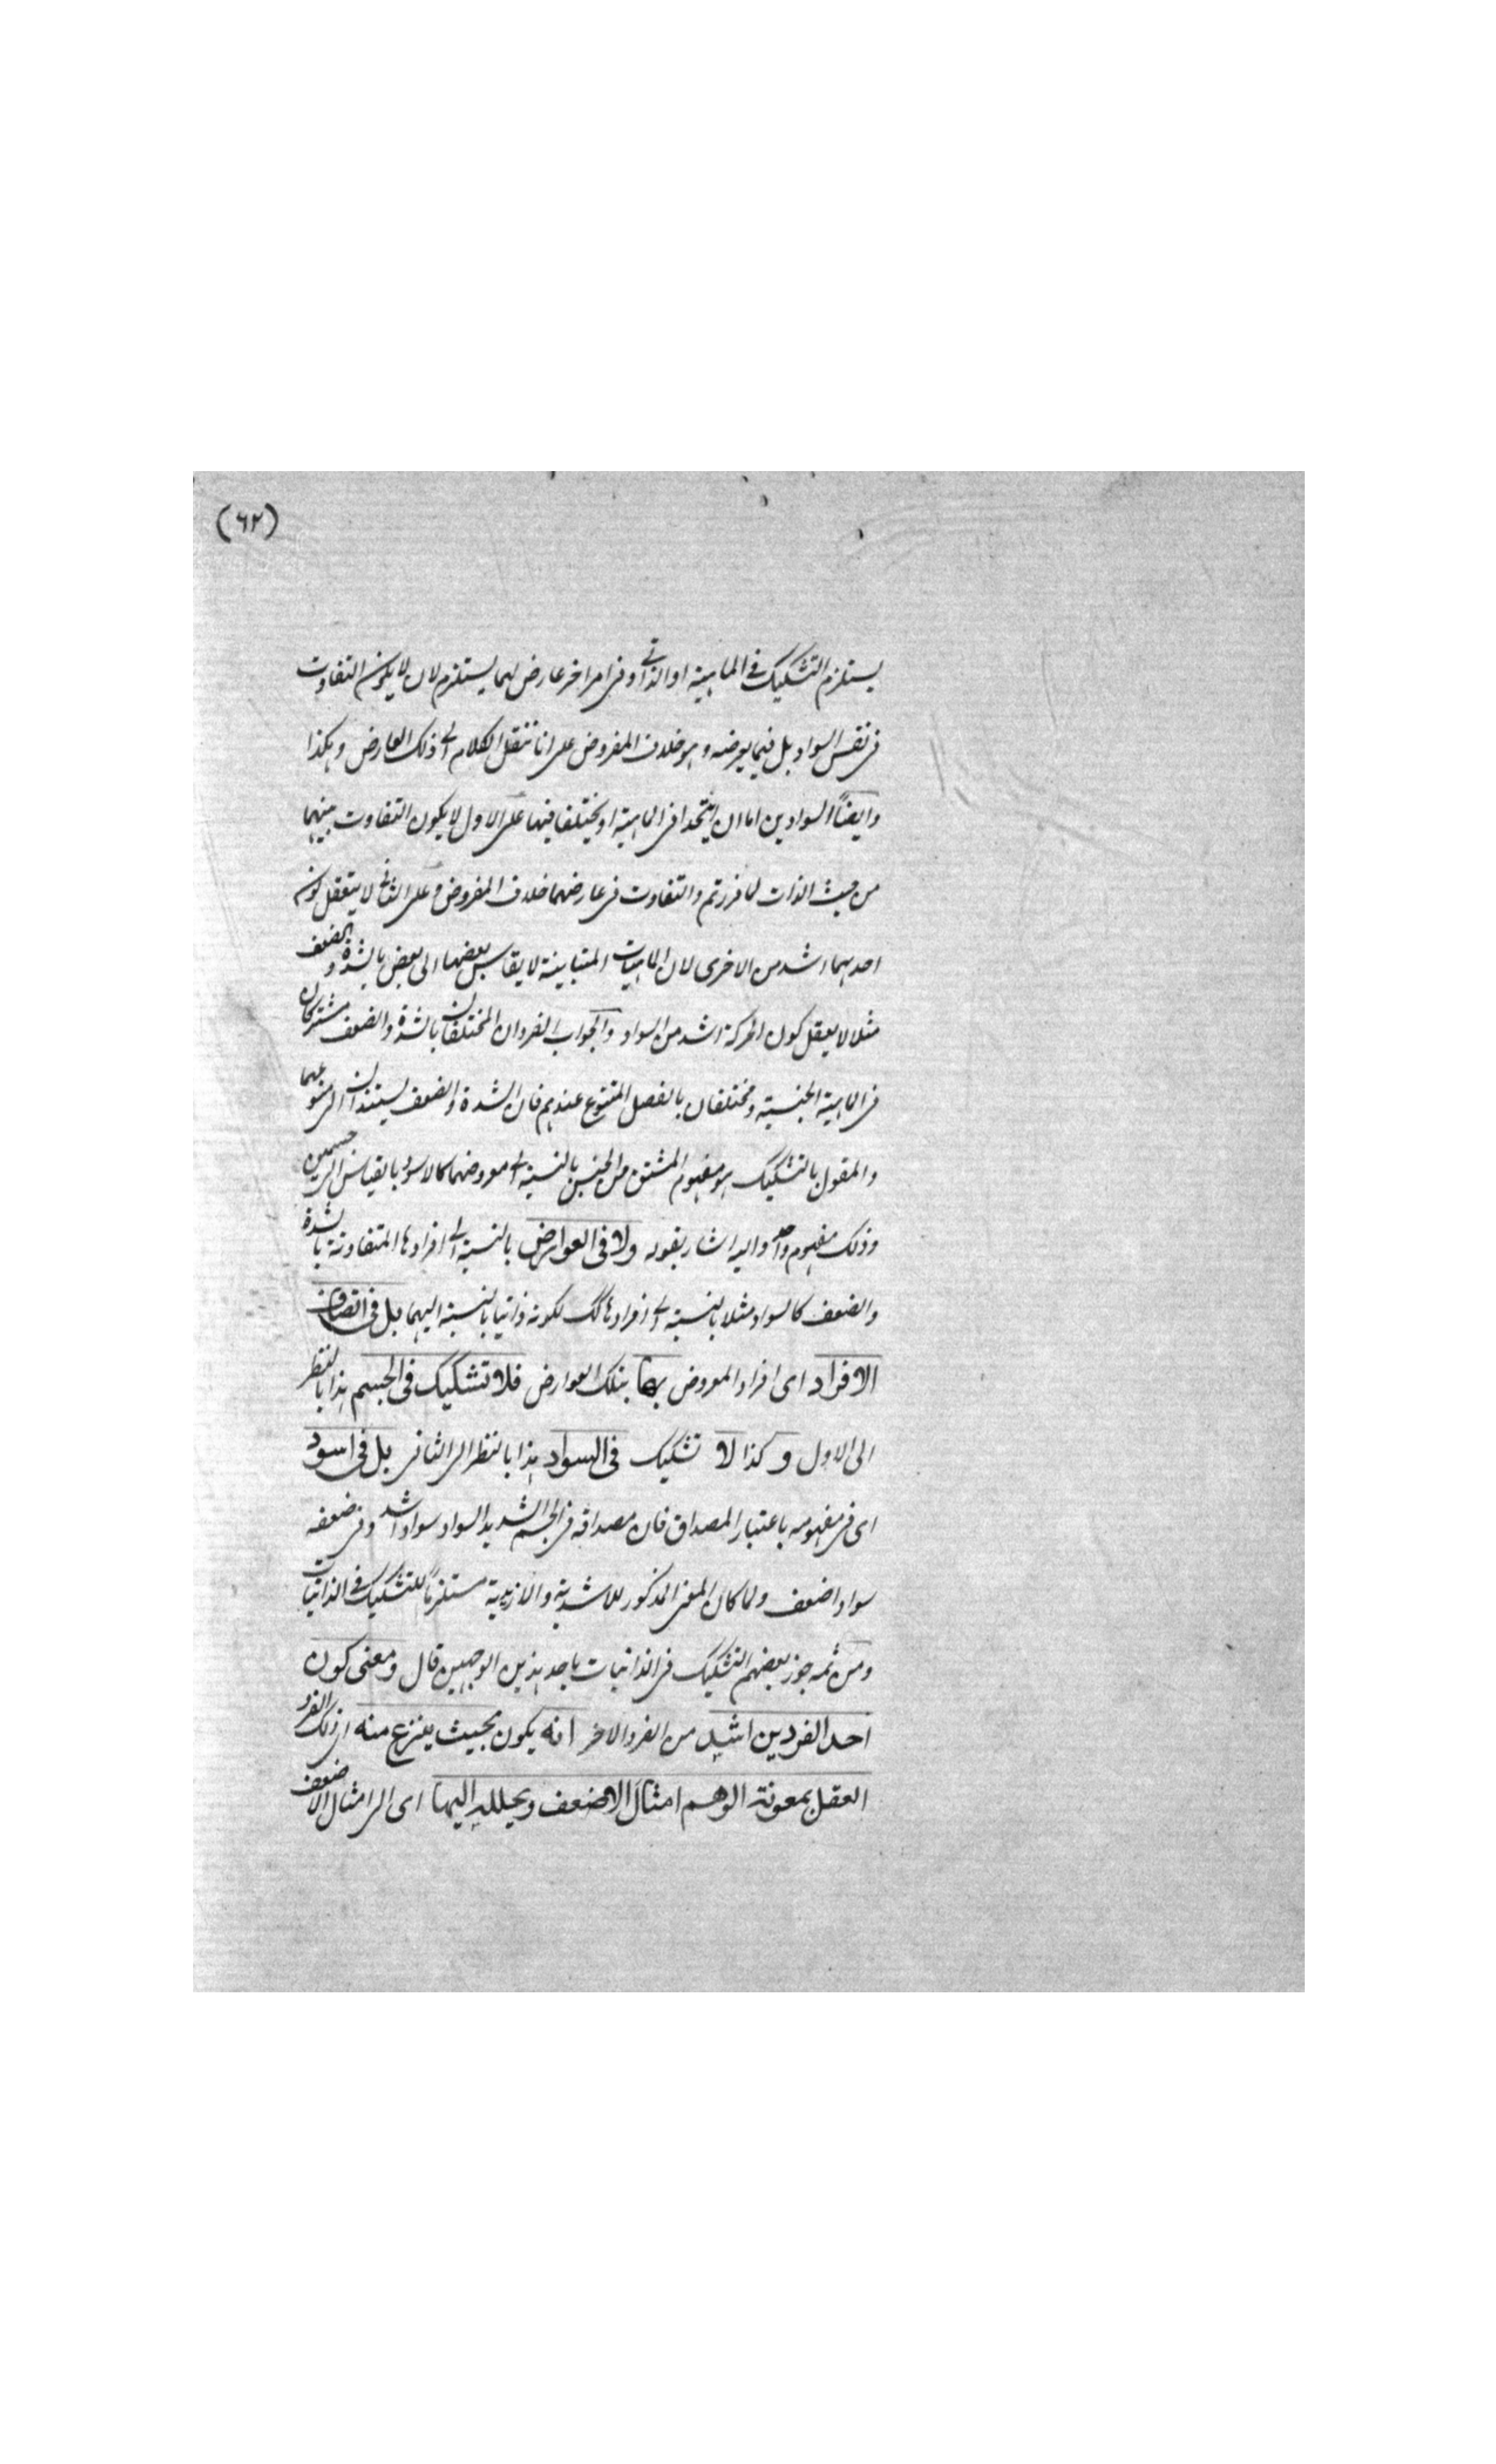 (٦٢)
يستلزم التشكيك في الماهية او الذاتي وفي امر اخر عارض لهما يستلزم لان لا يكون التفاوت
في نفس السواد بل فيما يعرضه وهو خلاف المفروض على انا ننقل الكلام الى ذلك العارض وهكذا
وايضاً السوادين اما ان يتحدا في الماهية او يختلفا فيها على الاول لا يكون التفاوت بينهما
من حيث الذات لما قررتم والتفاوت في عارضهما خلاف المفروض وعلى الثاني لا يتعقل كون
احدهما اشد من الاخرى لان الماهيات المتباينة لا يقاس بعضها الى بعض بالشدة والضعف
مثلا لا يعقل كون الحركة اشد من السواد والجواب الفردان المختلفان بالشدة والضعف مشتركان
في الماهية الجنسية ومختلفان بالفصل المنوع عندهم فان الشدة والضعف يستندان الى تنوعهما
والمقول بالتشكيك هو مفهوم المشتق من الجنس بالنسبة الى معروضهما كالاسود بالقياس الى جسمين
وذلك مفهوم واحد واليه اشار بقوله ولا في العوارض بالنسبة الى افرادها المتفاوتة بالشدة
والضعف كالسواد مثلا بالنسبة الى افرادها لك لكونه ذاتيا بالنسبة اليهما بل في اتصاف
الافراد اى افراد المعروض بها بتلك العوارض فلا تشكيك في الجسم هذا بالنظر
الى الاول وكذا لا تشكيك في السواد هذا بالنظر الى الثاني بل في اسود
اى في مفهومه باعتبار المصداق فان مصداقه في الجسم الشديد السواد سواد اشد وفي ضعفه
سواد اضعف ولما كان المعنى المذكور للاشدية والازيدية مستلزماً للتشكيك في الذاتيات
ومن ثمه جوز بعضهم التشكيك في الذاتيات باحد هذين الوجهين قال ومعنى كون
احد الفردين اشد من الفرد الاخر انه يكون بحيث ينتزع منه اى ذلك الفرد
العقل بمعونة الوهم امثال الاضعف ويحلله اليها اى الى امثال الاضعف